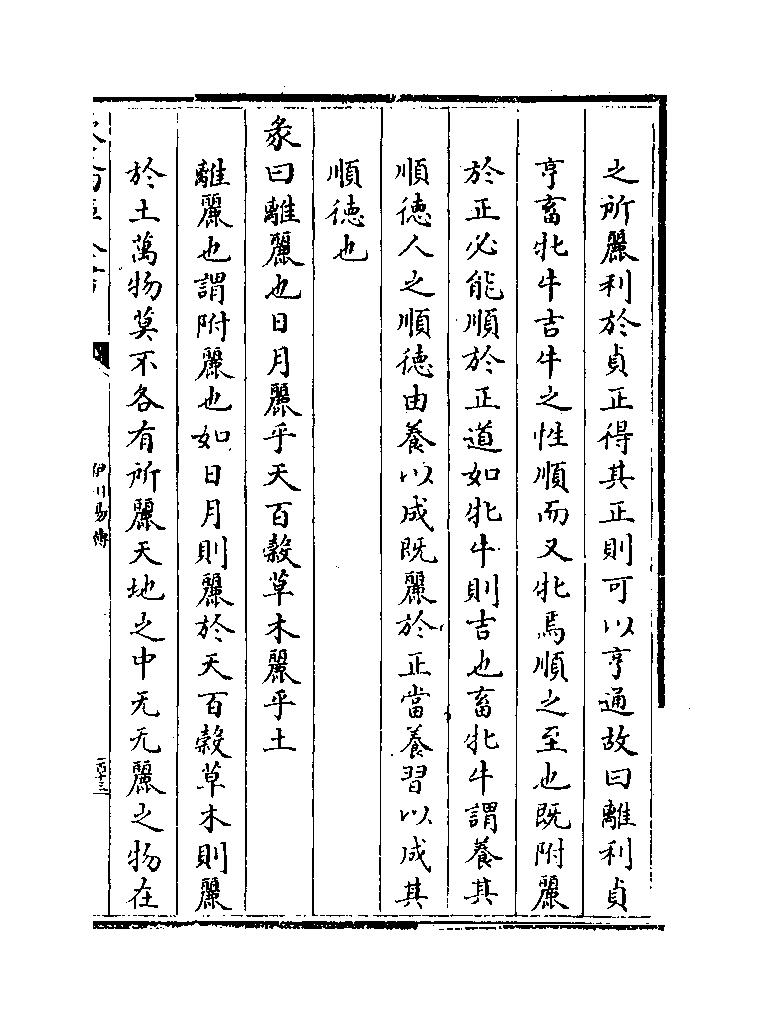 之所麗利於貞正得其正則可以亨通故曰離利貞
亨畜牝牛吉牛之性順而又牝焉順之至也既附麗
於正必能順於正道如牝牛則吉也畜牝牛謂養其
順徳人之順徳由養以成既麗於正當養習以成其
順徳也
彖曰離麗也日月麗乎天百穀草木麗乎土
離麗也謂附麗也如日月則麗於天百穀草木則麗
於土萬物莫不各有所麗天地之中无无麗之物在
伊川易傳